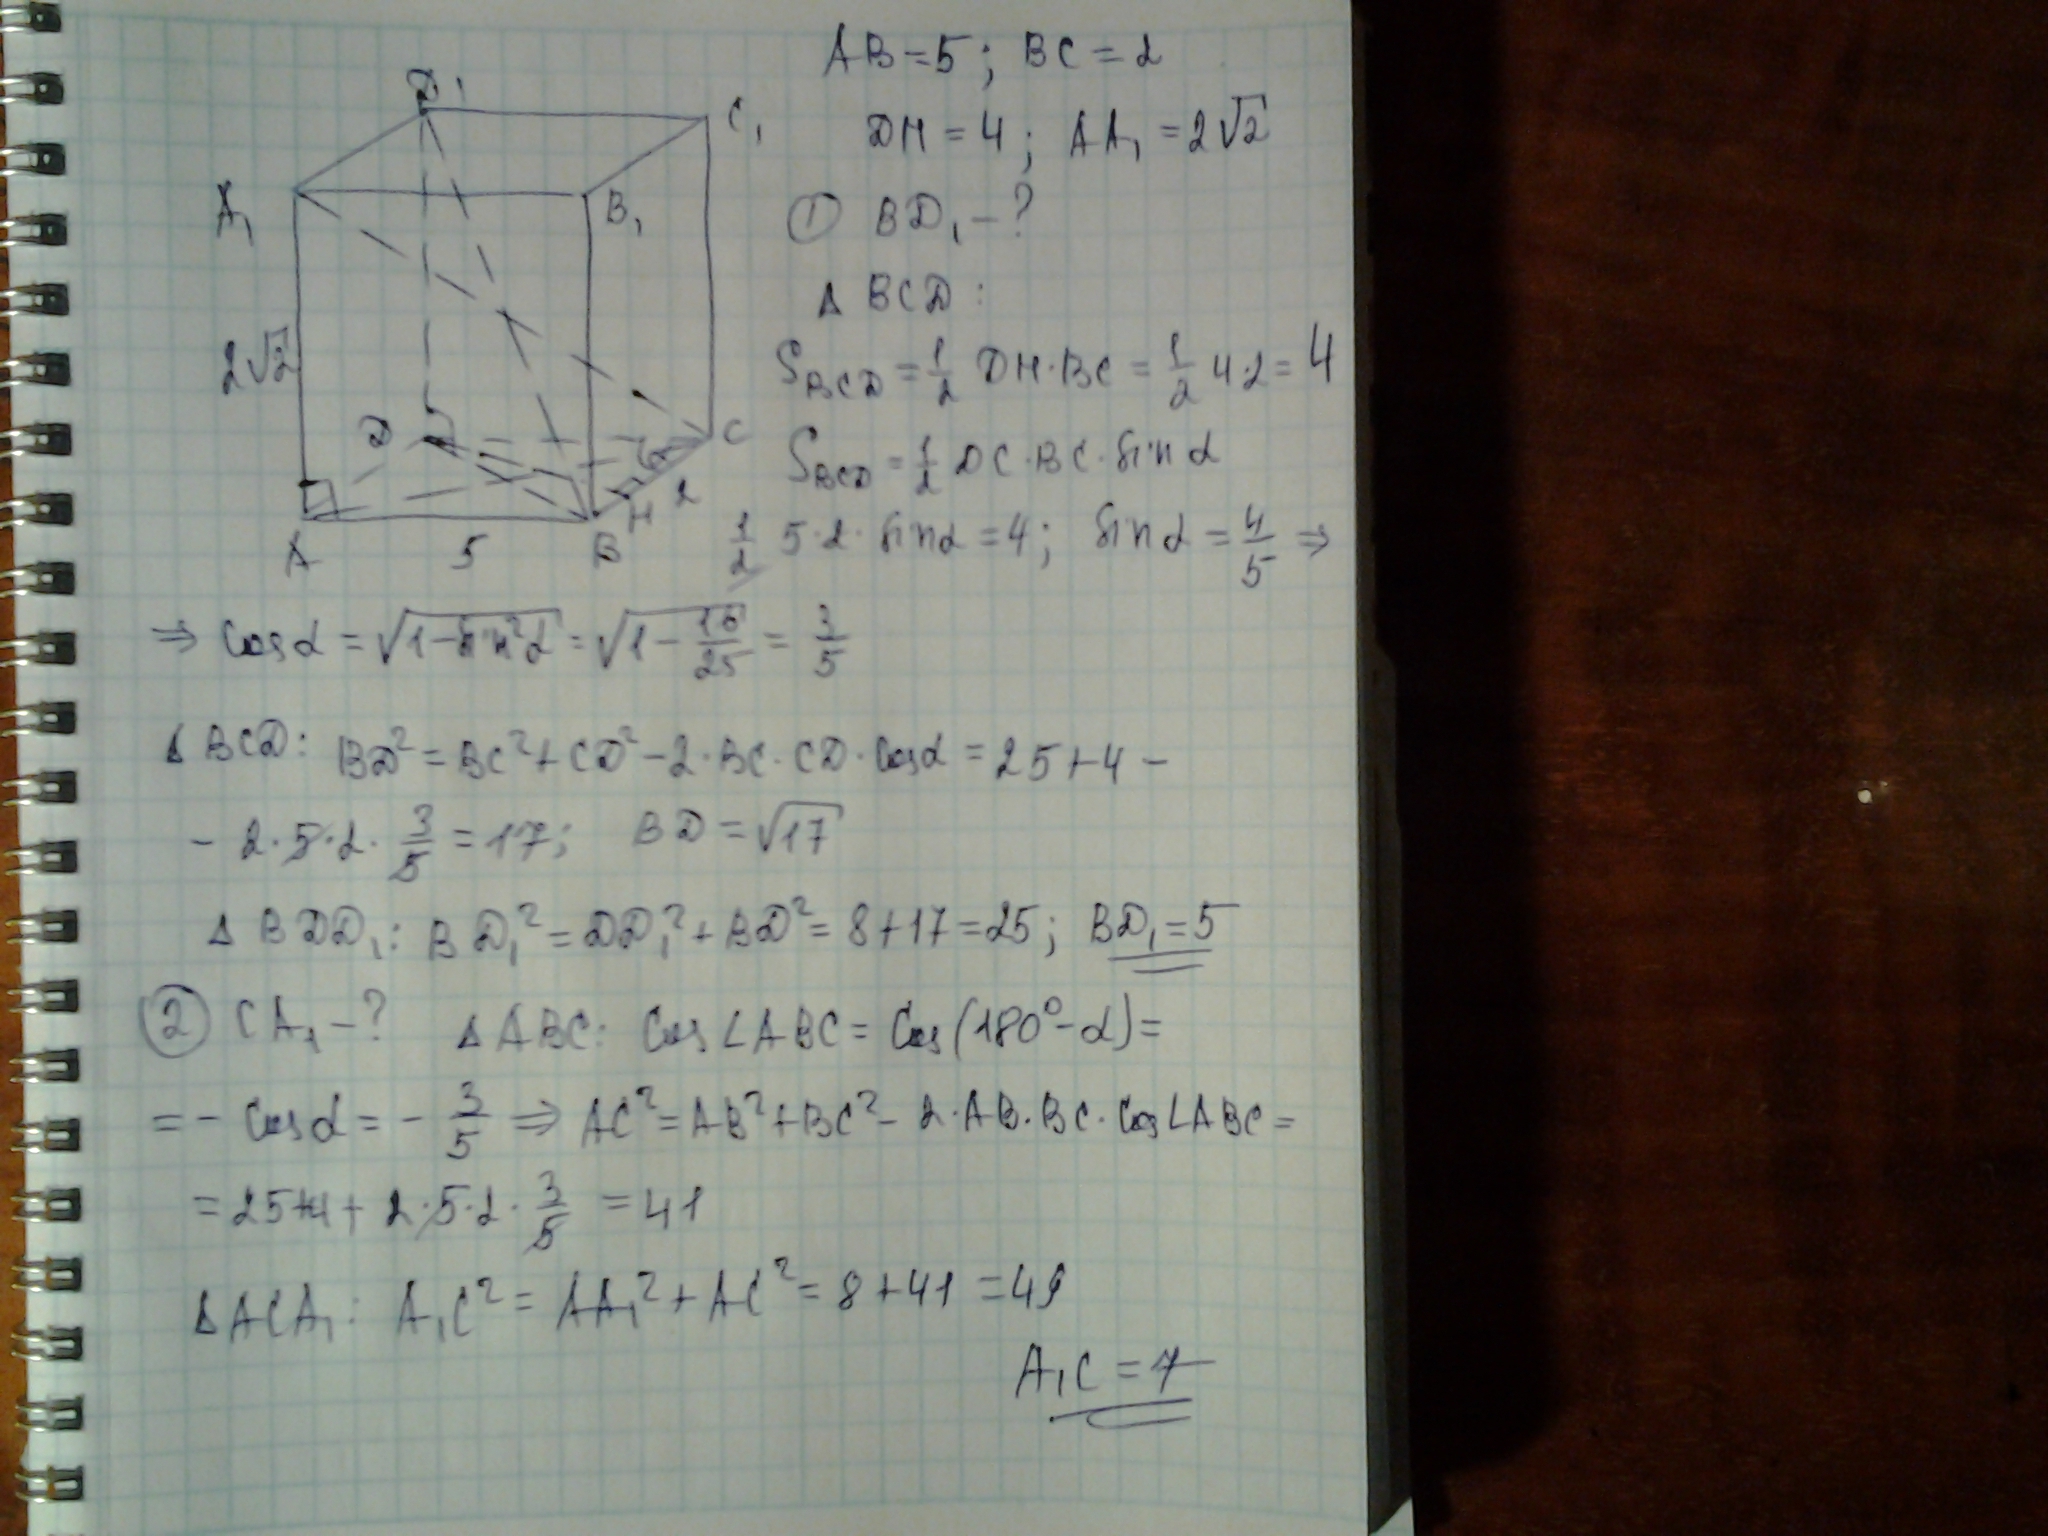 AB=5; BC=2
DH=4; AA₁=2√2
① BD₁-?
Δ BCD:
S_BCD = 1/2 DH·BC = 1/2 4·2=4
S_BCD = 1/2 DC·BC·sin α
1/2 5·2·sin α =4; sin α = 4/5 ⇒
⇒ cos α = √(1-sin²α) = √(1-16/25) = 3/5
Δ BCD: BD² = BC²+CD²-2·BC·CD·cos α = 25+4-
-2·5·2·3/5 = 17; BD = √17
Δ BDD₁: BD₁² = DD₁²+BD² = 8+17=25; BD₁=5
② CA₁-? Δ ABC: cos ∠ABC = cos(180°-α)=
=- cos α = - 3/5 ⇒ AC²=AB²+BC²-2·AB·BC·cos∠ABC=
=25+4+2·5·2·3/5 =41
Δ ACA₁: A₁C² = AA₁²+AC² = 8+41 =49
A₁C =7
D₁
C₁
A₁
B₁
2√2
D
C
A
5
B
H
2
α